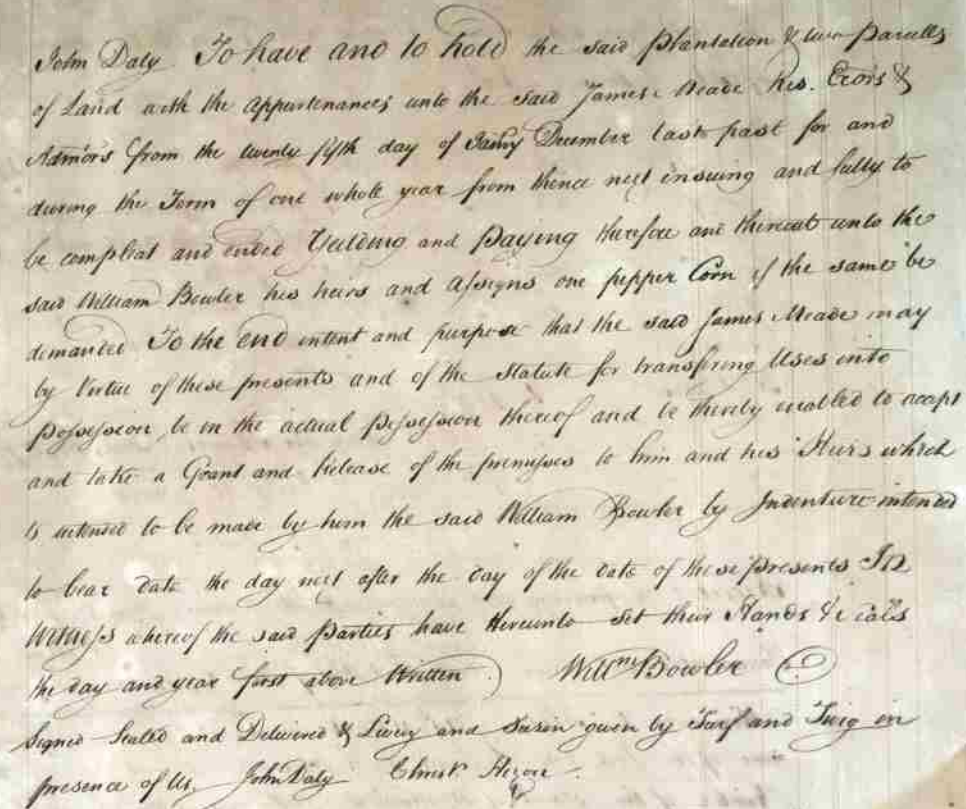 John Daly To have and to hold the said Plantation & two Parcells
of Land with the appurtenances unto the said James Meade his Exors &
Admors from the twenty fifth day of December last past for and
during the Term of one whole year from thence next insuing and fully to
be compleat and ended Yeilding and Paying therefore and thereout unto the
said William Bowler his heirs and assigns one pepper Corn if the same be
demanded To the end intent and purpose that the said James Meade may
by Virtue of these presents and of the Statute for transfering Uses into
Possession be in the actual Possession thereof and be thereby enabled to accept
and take a Grant and Release of the premisses to him and his Heirs which
is intended to be made by him the said William Bowler by Indenture intended
to bear date the day next after the day of the date of these presents In
Witness whereof the said Parties have thereunto set their Hands & Seals
the day and year first above Written Willm Bowler
Signed Sealed and Delivered & Livery and Seisin given by Turf and Twig in
presence of Us, John Daly Christ